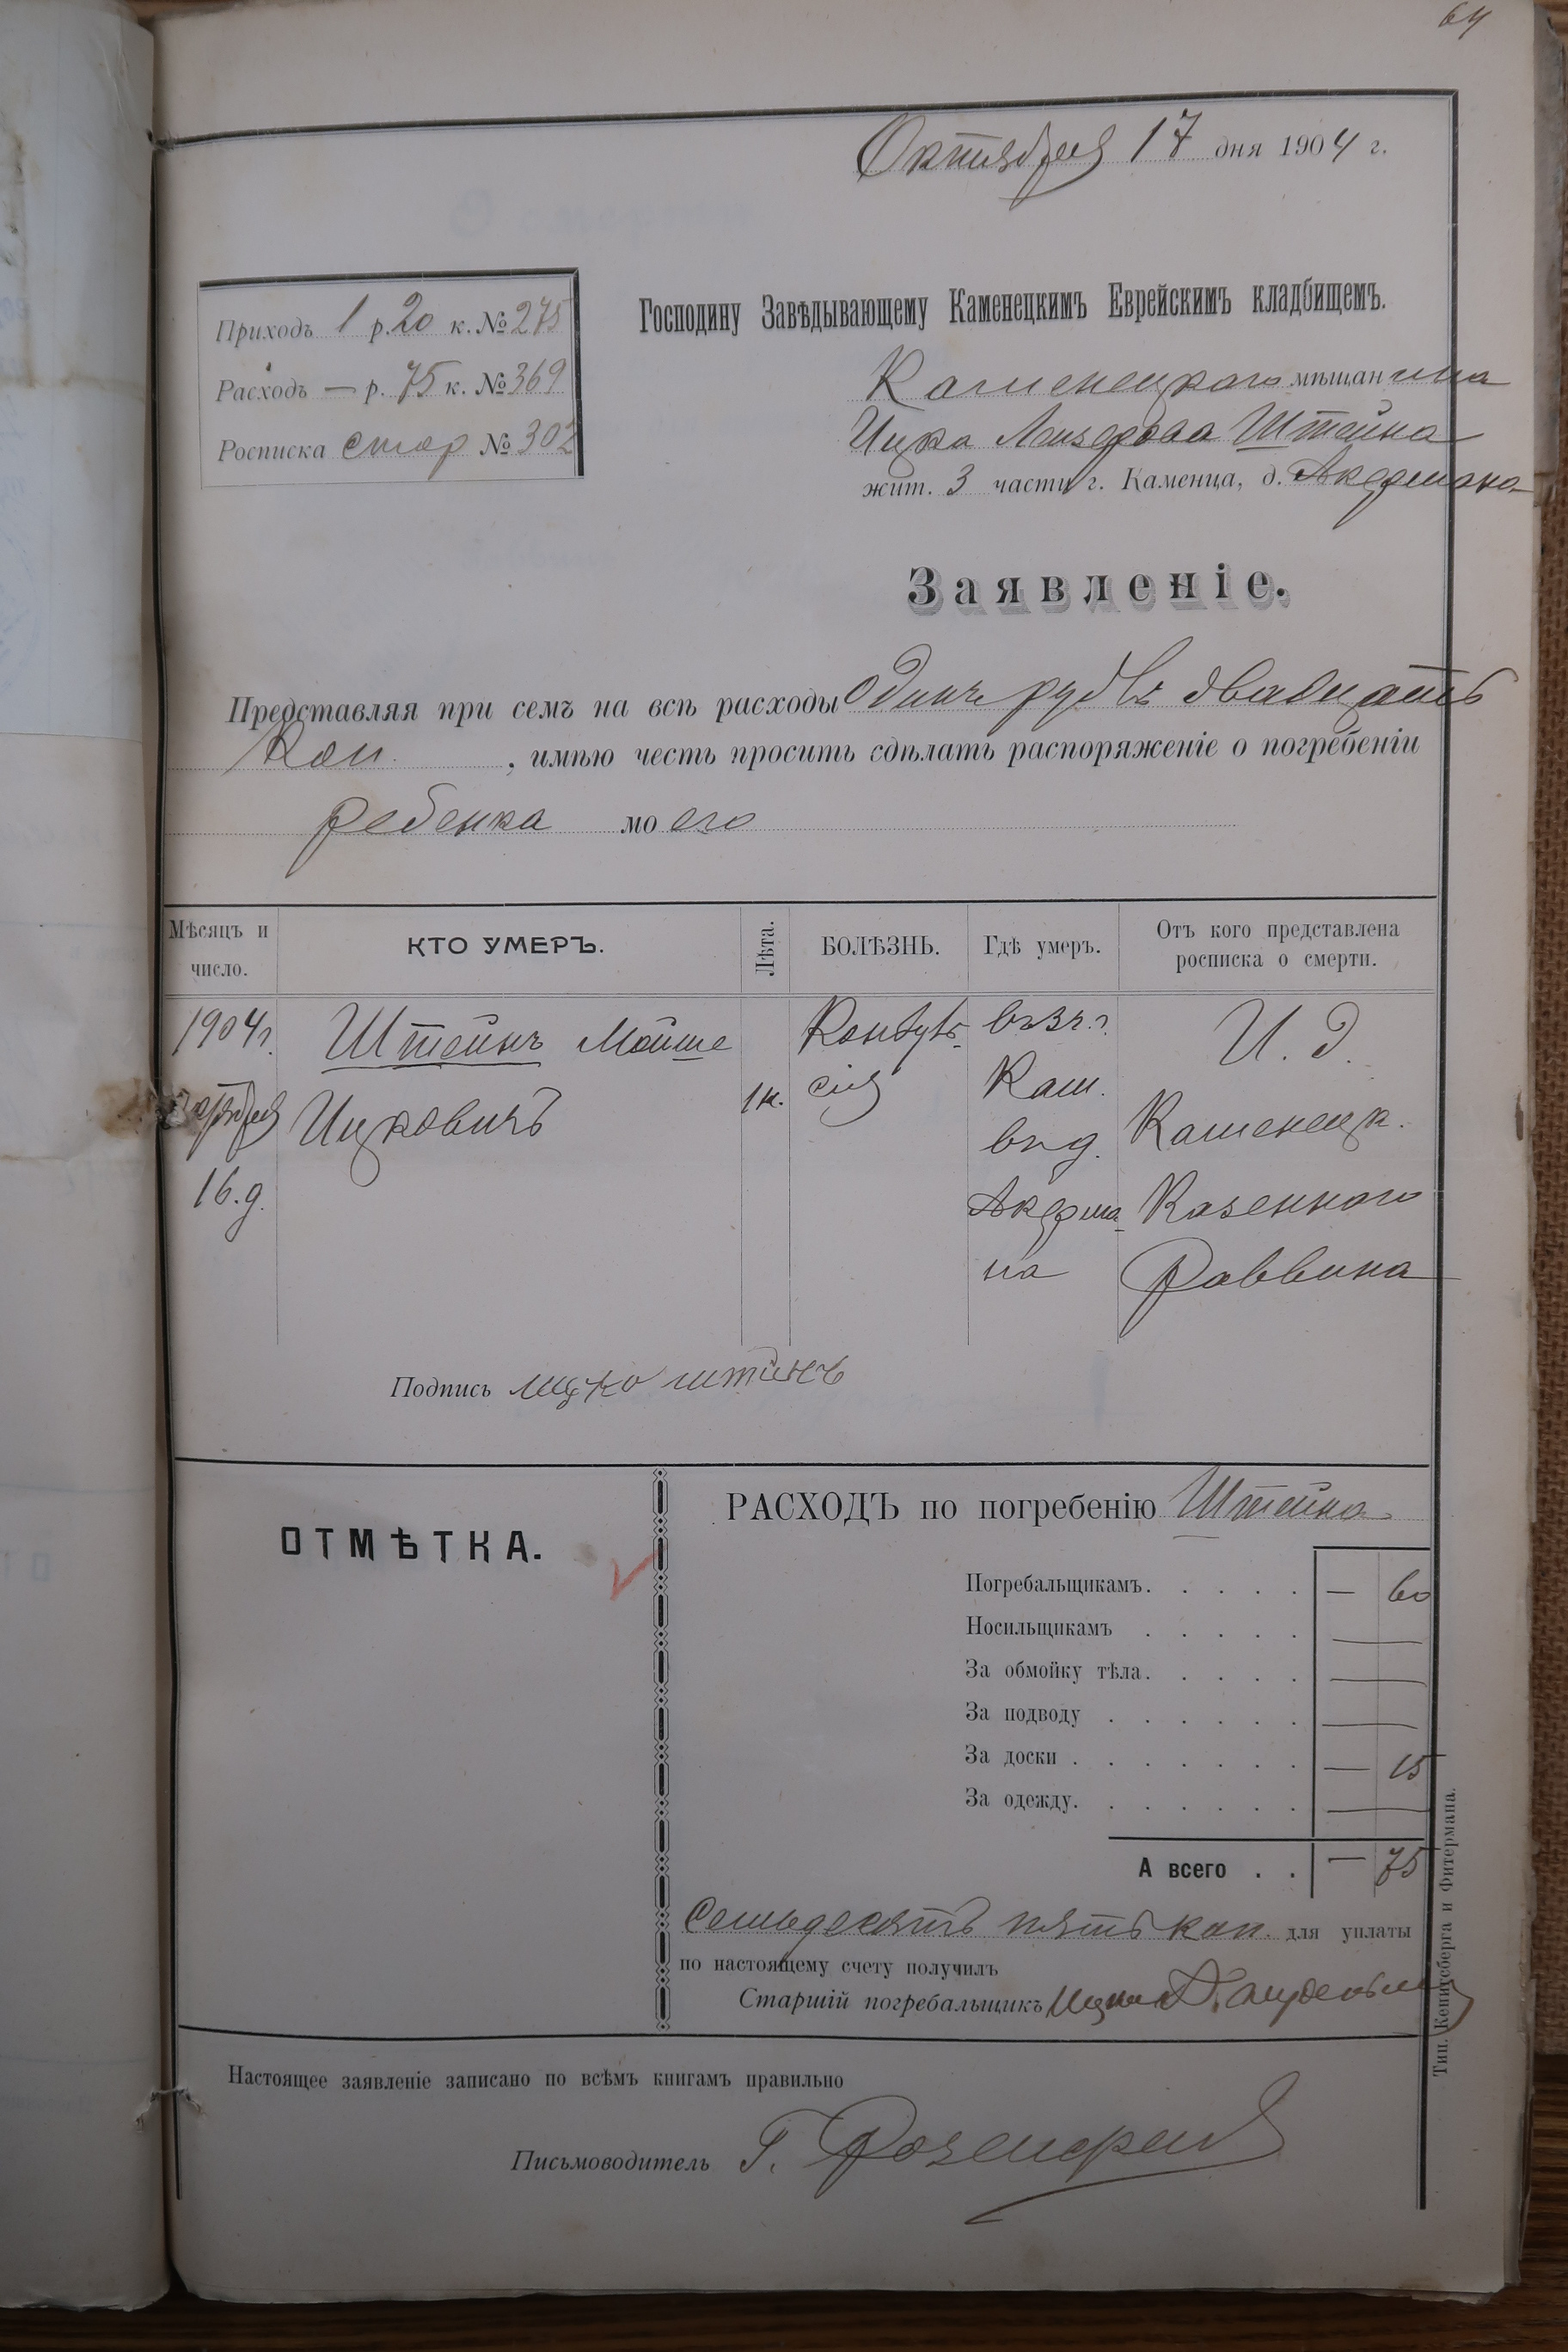 64
Октября 17 дня 1904 г.
Приходъ 1 р. 20 к. № 275
Расходъ — р. 75 к. № 369
Росписка стар № 302
Господину Завѣдывающему Каменецкимъ Еврейскимъ кладбищемъ.
Каменецкаго мѣщанина
Ицка Лейзерова Штейна
жит. 3 части г. Каменца, д. Акермана
Заявленіе.
Представляя при семъ на всѣ расходы одинъ рубль двадцать
коп. , имѣю честь просить сдѣлать распоряженіе о погребеніи
ребенка моего
Мѣсяцъ и число.
КТО УМЕРЪ.
Лѣта.
БОЛѢЗНЬ.
Гдѣ умеръ.
Отъ кого представлена росписка о смерти.
1904 г.
16. д.
Штейнъ Мойше
Ицковичъ
1 н.
Конвуль-
сія
въ 3 ч. г.
Кам.
въ д.
Акерма-
на
И. Д.
Каменецк.
Казеннаго
Раввина
Подпись ицко штинъ
ОТМѢТКА.
РАСХОДЪ по погребенію Штейна
Погребальщикамъ. . . . . — 60
Носильщикамъ . . . . . —
За обмойку тѣла. . . . . —
За подводу . . . . . . —
За доски . . . . . . . — 15
За одежду. . . . . . . —
А всего . . — 75
Семьдесятъ пять коп. для уплаты
по настоящему счету получилъ
Старшій погребальщикъ
Настоящее заявленіе записано по всѣмъ книгамъ правильно
Письмоводитель Г.
Тип. Кенигсберга и Фитермана.